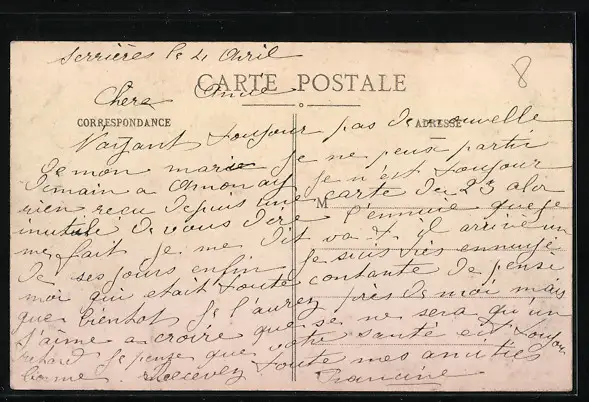 Serrières le 4 Avril
8
CARTE POSTALE
Chere Amie
CORRESPONDANCE
ADRESSE
Nayant toujour pas de nouvelle
de mon marie je ne peux partir
demain a Annonay je n'est toujour
rien reçu depuis une carte du 23 alor
M
inutule de vous dire l'ennuie que je
me fait je me dit va t il arrivé un
de ses jours enfin je suis très ennuyé
moi qui etait toute contante de pensé
que bientot je l'aurez près de moi mais
j'aime a croire que se ne sera qu'un
retard je pense que votre santé est toujour
bonne recevez toute mes amitiés
Francine